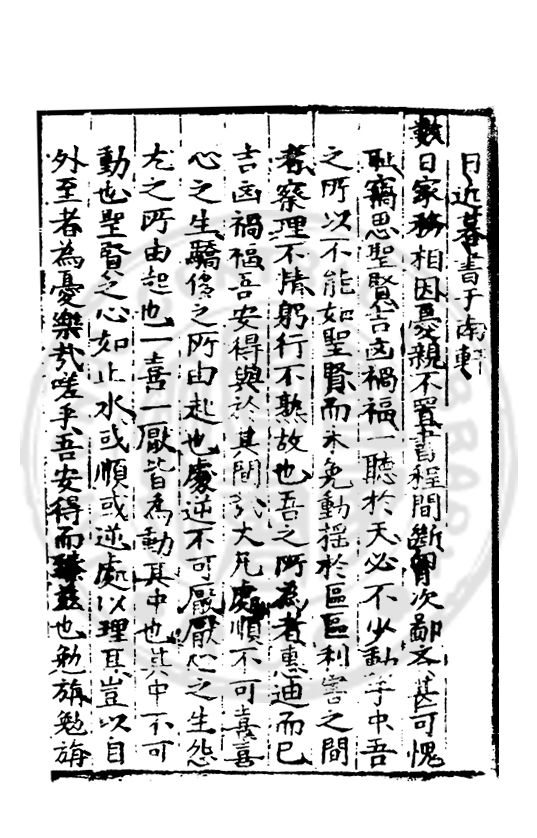 日近暮書于南軒
數日家務相因憂親不置書程間斷胷次鄙吝甚可愧
耻竊思聖賢吉凶禍福一聽於天必不少動于中吾
之所以不能如聖賢而未免動搖於區區利害之間
者察理不精躬行不熟故也吾之所為者惠迪而已
吉凶禍福吾安得與於其間哉大凡處順不可喜喜
心之生驕侈之所由起也處逆不可厭厭心之生怨
尤之所由起也一喜一厭皆為動其中也其中不可
動也聖賢之心如止水或順或逆處以理耳豈以自
外至者為憂樂哉嗟乎吾安得而臻茲也勉旃勉旃